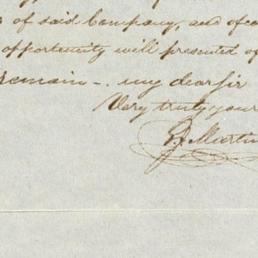 of said Company, and of
opportunity will presented
remain -. my dear Sir
Very truly your
Martin